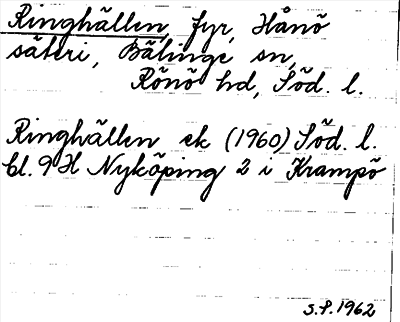 Ringhällen, fyr, Hånö
säteri, Bälinge sn,
Rönö hd, Söd. l.
Ringhällen ek (1960) Söd. l.
bl. 9 H Nyköping 2 i Krampö
S.P. 1962